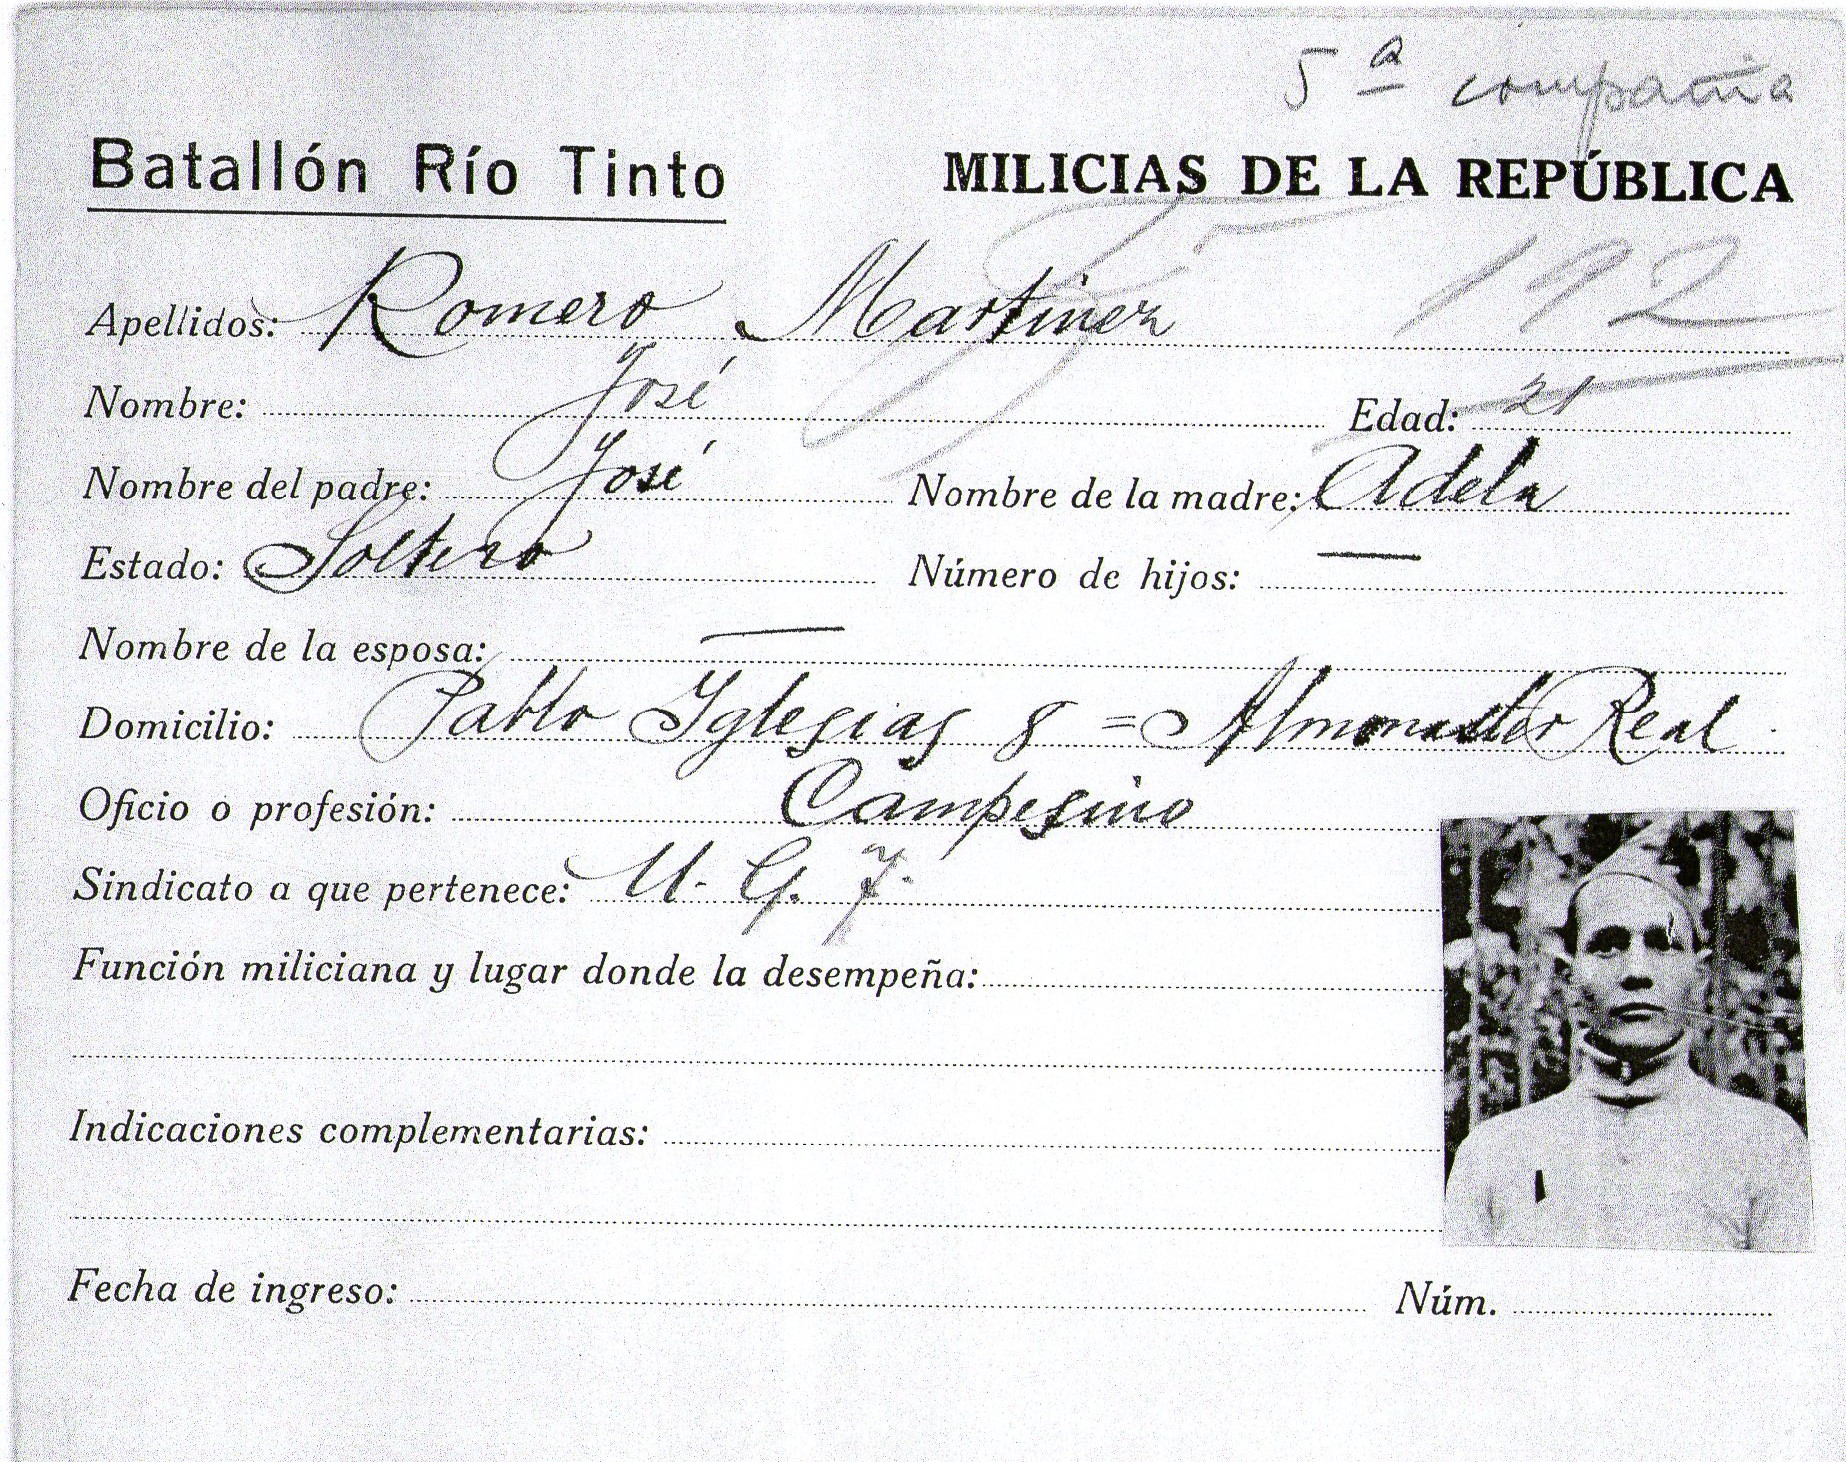 5ª compañia
Batallón Río Tinto MILICIAS DE LA REPÚBLICA
192
Apellidos: Romero Martinez
Nombre: José Edad: 21
Nombre del padre: José Nombre de la madre: Adela
Estado: Soltero Número de hijos: —
Nombre de la esposa: —
Domicilio: Pablo Iglesias 8 = Almonaster Real
Oficio o profesión: Campesino
Sindicato a que pertenece: U. G. T.
Función miliciana y lugar donde la desempeña:
Indicaciones complementarias:
Fecha de ingreso: Núm.